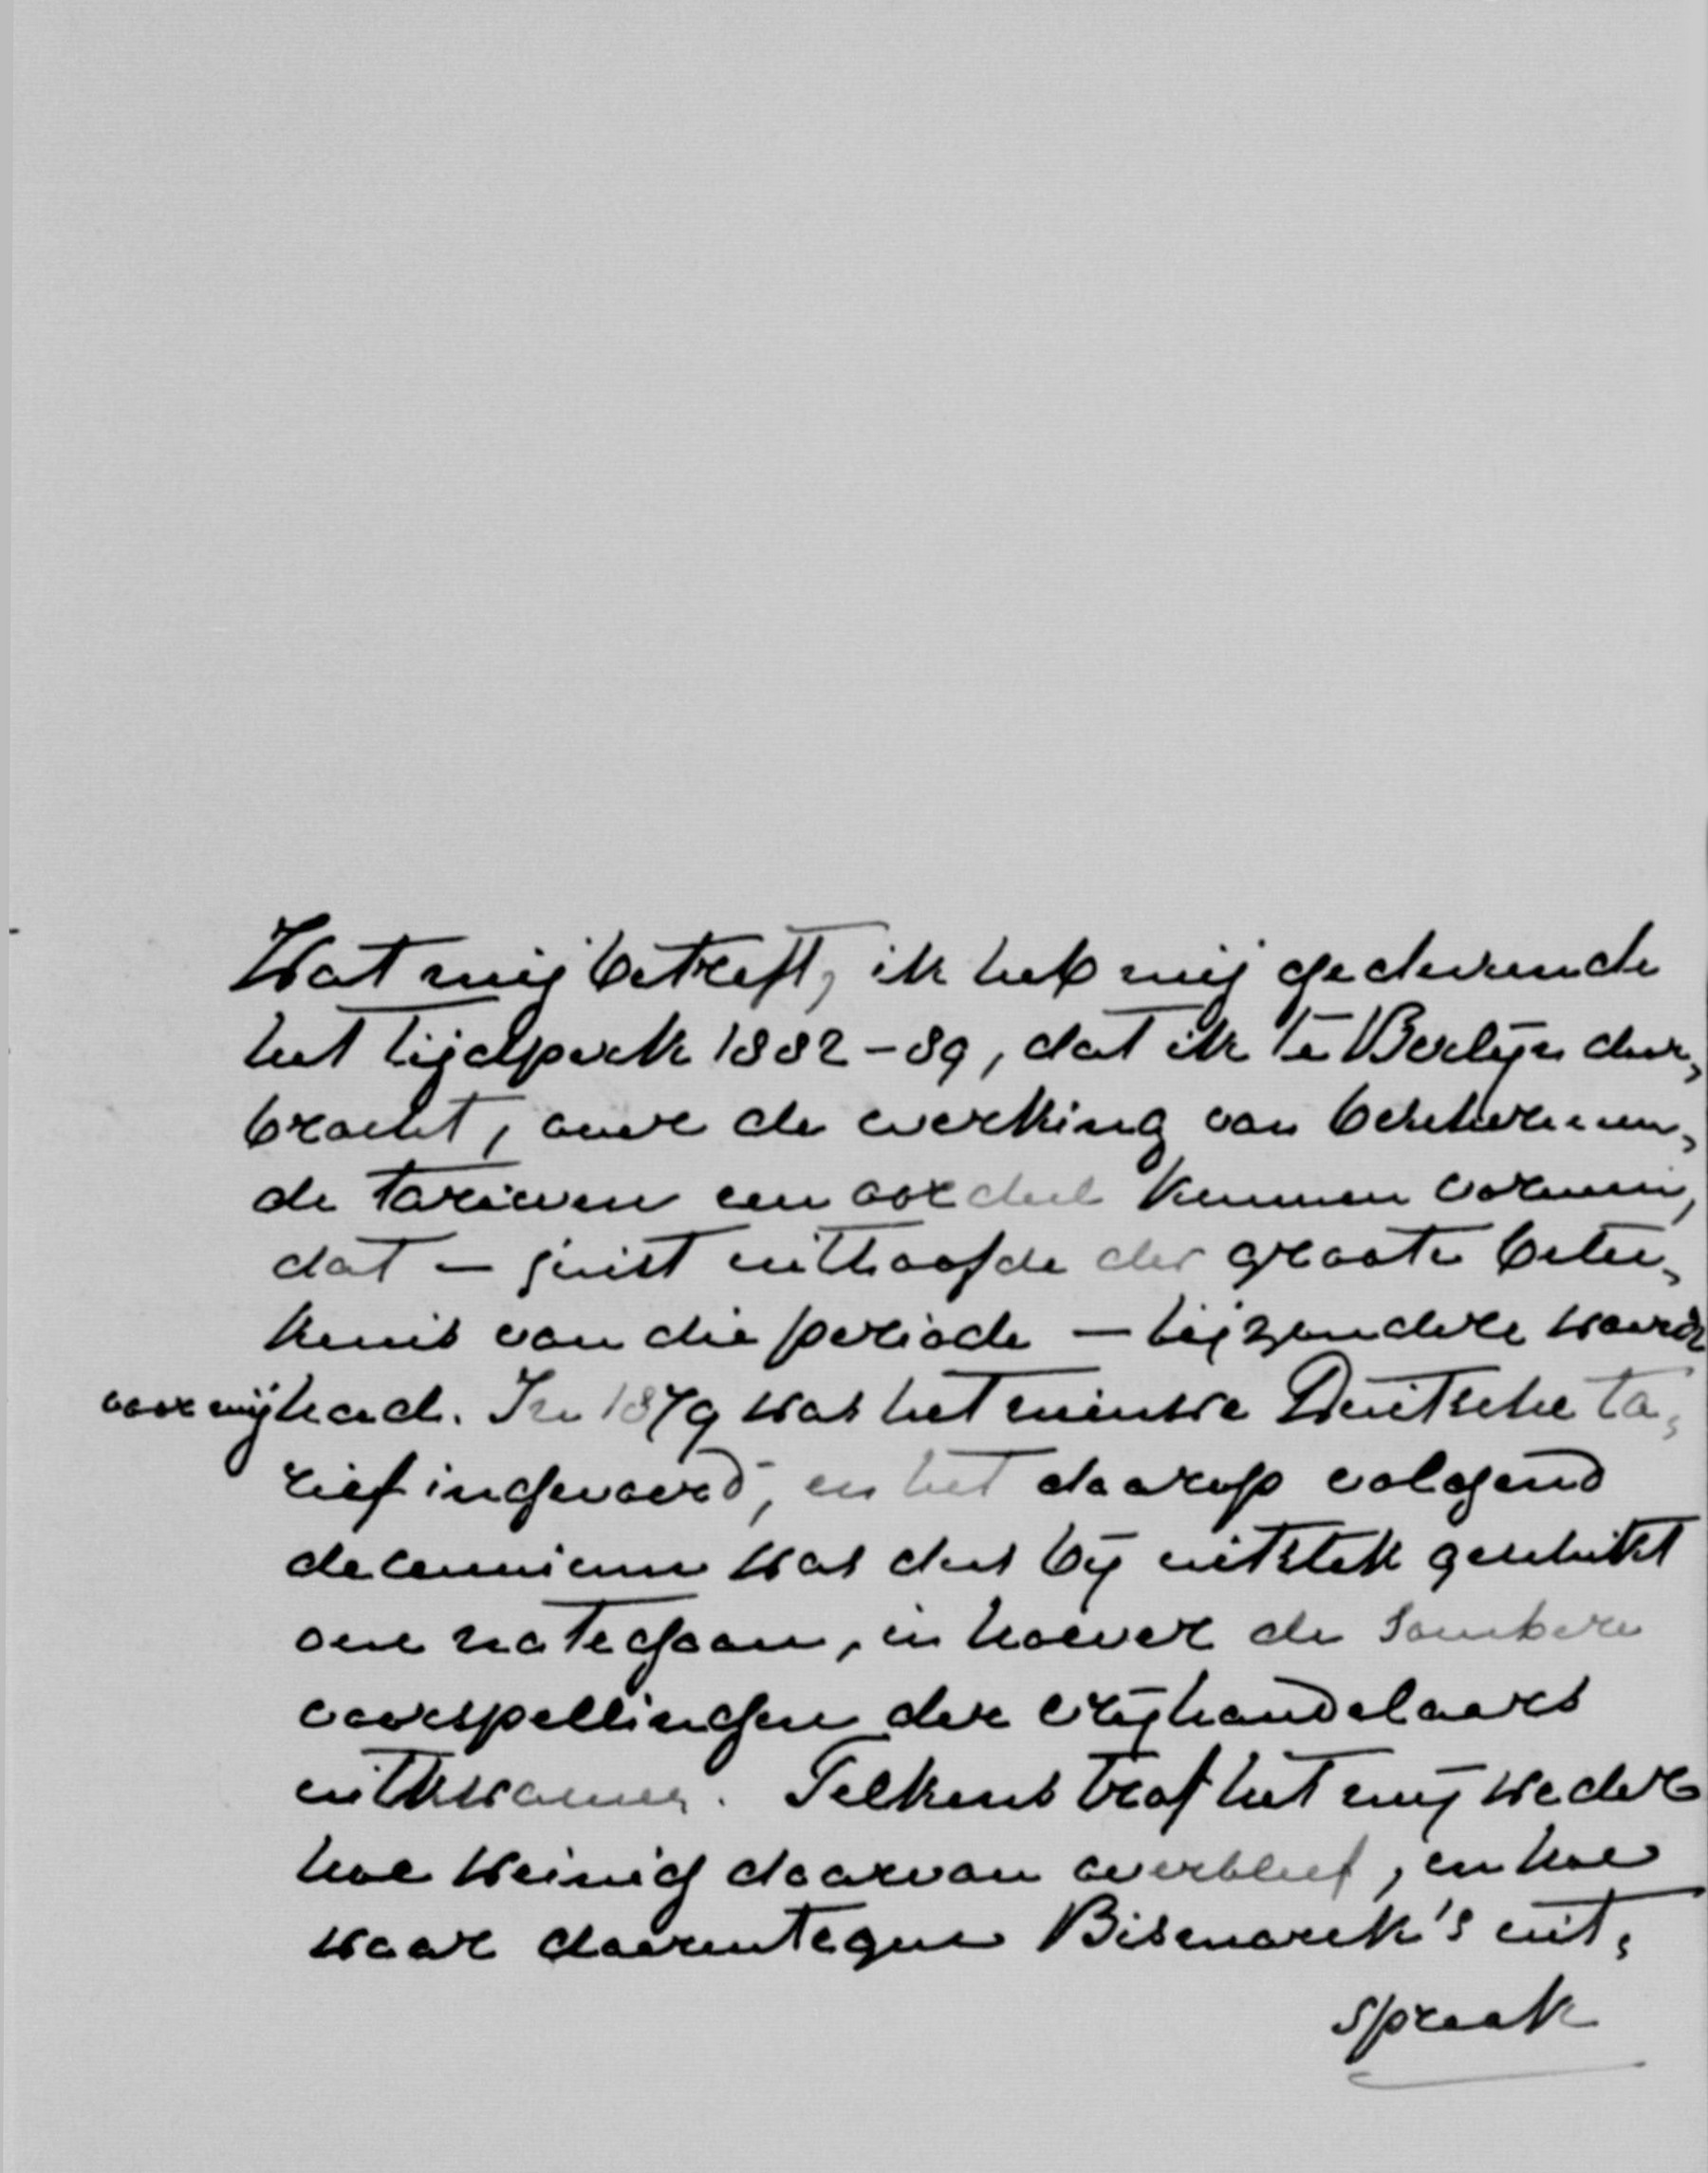 Wat mij betreft, ik heb mij gedurende
het tijdperk 1882-89, dat ik te Berlijn door,
bracht, over de werking van beschermen,
de tarieven een oordeel kunnen vormen,
dat – juist uithoofde der groote betee,
kenis van die periode – bijzondere waarde
voor mij had. In 1879 was het nieuwe Duitsche ta,
rief ingevoerd, en het daarop volgend
decennium was dus bij uitstek geschikt
om na te gaan, in hoever de sombere
voorspellingen der vrijhandelaars
uitkwamen. Telkens trof het mij weder
hoe weinig daarvan overbleef, en hoe
waar daarentegen Bismarck's uit,
spraak